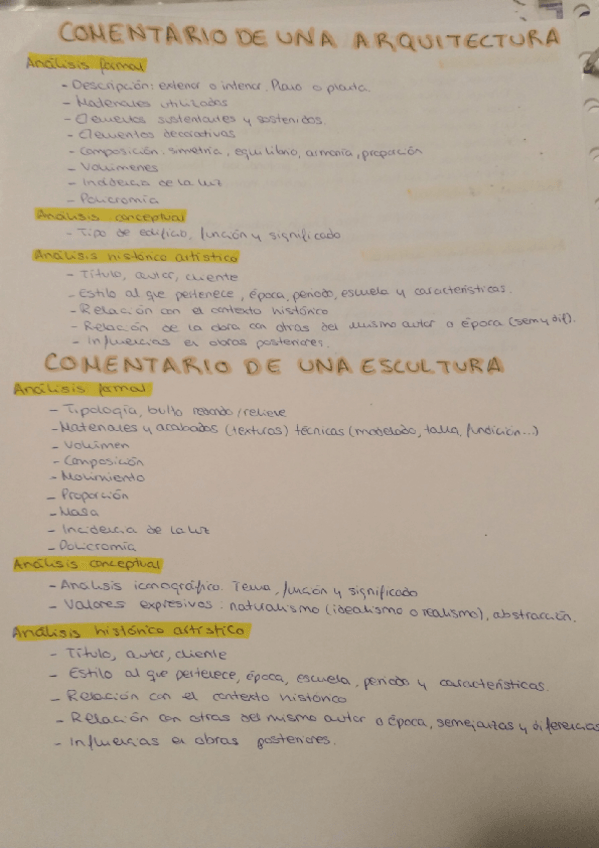 COMENTARIO DE UNA ARQUITECTURA
Análisis formal
- Descripción: exterior o interior. Plano o planta.
- Materiales utilizados
- Elementos sustentantes y sostenidos.
- Elementos decorativos
- Composición. simetría, equilibrio, armonía, proporción
- Volúmenes
- Incidencia de la luz
- Policromía
Análisis conceptual
- Tipo de edificio, función y significado
Análisis histórico artístico
- Título, autor, cliente
- Estilo al que pertenece, época, periodo, escuela y características.
- Relación con el contexto histórico
- Relación de la obra con otras del mismo autor o época (sem y dif).
- Influencias en obras posteriores.
COMENTARIO DE UNA ESCULTURA
Análisis formal
- Tipología, bulto redondo/relieve
- Materiales y acabados (texturas) técnicas (modelado, talla, fundición...)
- Volumen
- Composición
- Movimiento
- Proporción
- Masa
- Incidencia de la luz
- Policromía
Análisis conceptual
- Análisis iconográfico. Tema, función y significado
- Valores expresivos: naturalismo (idealismo o realismo), abstracción.
Análisis histórico artístico
- Título, autor, cliente
- Estilo al que pertenece, época, escuela, periodo y características.
- Relación con el contexto histórico
- Relación con otras del mismo autor o época, semejanzas y diferencias
- Influencias en obras posteriores.